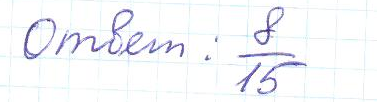 Ответ: 8/15